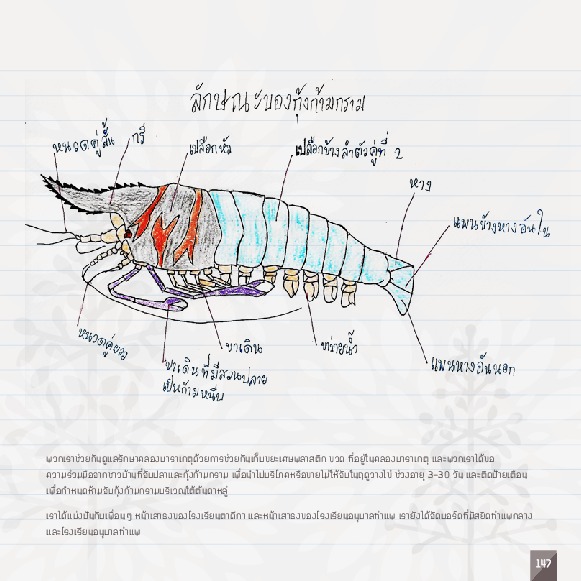 ลักษณะของกุ้งก้ามกราม
หนวดคู่สั้น
กรี
เปลือกหัว
เปลือกข้างลำตัวคู่ที่ 2
หาง
แพนข้างหางอันใน
หนวดคู่ยาว
ขาเดินที่มีส่วนปลาย
เป็นก้ามหนีบ
ขาเดิน
ขาว่ายน้ำ
แพนหางอันนอก
พวกเราช่วยกันดูแลรักษาคลองมาราเกตุด้วยการช่วยกันเก็บขยะเศษพลาสติก ขวด ที่อยู่ในคลองมาราเกตุ และพวกเราได้ขอ
ความร่วมมือจากชาวบ้านที่จับปลาและกุ้งก้ามกราม เพื่อนำไปบริโภคหรือขายไม่ให้จับในฤดูวางไข่ ช่วงอายุ 3-30 วัน และติดป้ายเตือน
เพื่อกำหนดห้ามจับกุ้งก้ามกรามบริเวณใต้ต้นดาหลู่
เราได้แบ่งปันกับเพื่อนๆ หน้าเสาธงของโรงเรียนตาดีกา และหน้าเสาธงของโรงเรียนอนุบาลท่าแพ เรายังได้จัดบอร์ดที่มัสยิดท่าแพกลาง
และโรงเรียนอนุบาลท่าแพ
147